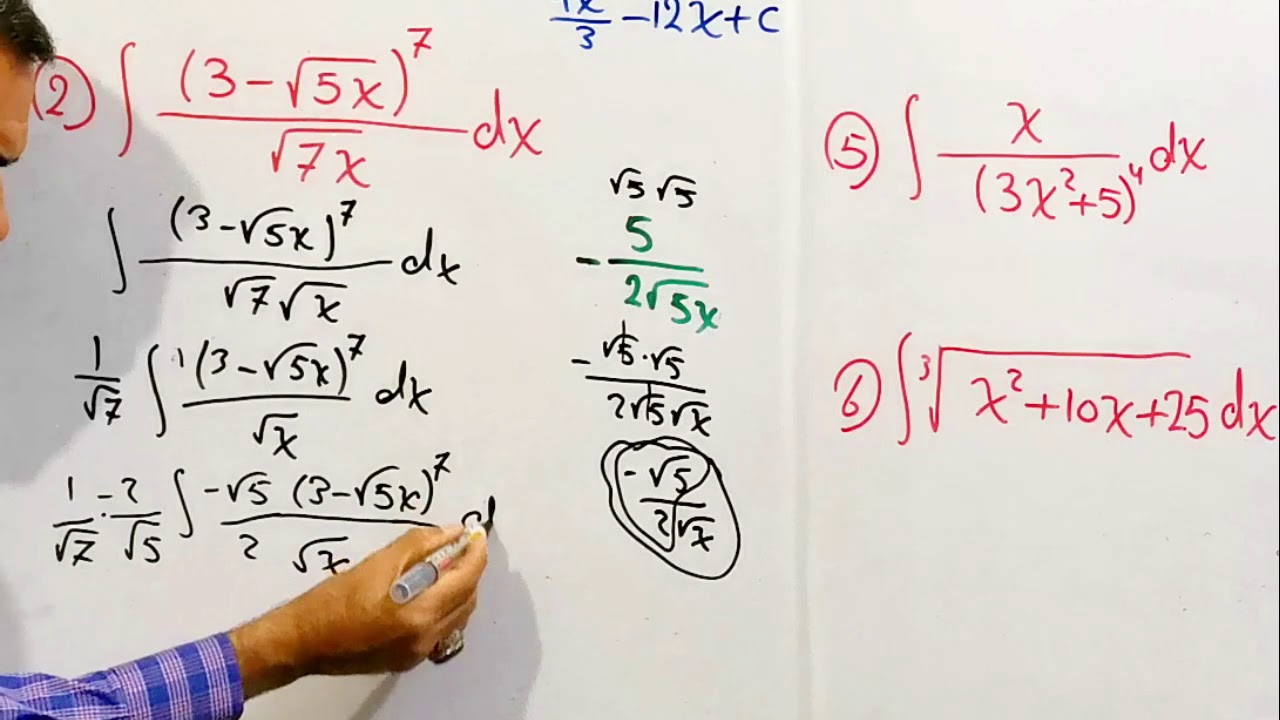 7x/3 - 12x + c
(2) ∫ (3 - √5x)^7 / √7x dx
∫ (3 - √5x)^7 / √7 √x dx
1/√7 ∫ 1 (3 - √5x)^7 / √x dx
1/√7 · -2/√5 ∫ -√5 (3 - √5x)^7 / 2 √x d
√5 √5
- 5 / 2√5x
- √5 · √5 / 2√5 √x
-√5 / 2√x
(5) ∫ x / (3x² + 5)^4 dx
(6) ∫ ∛(x² + 10x + 25) dx